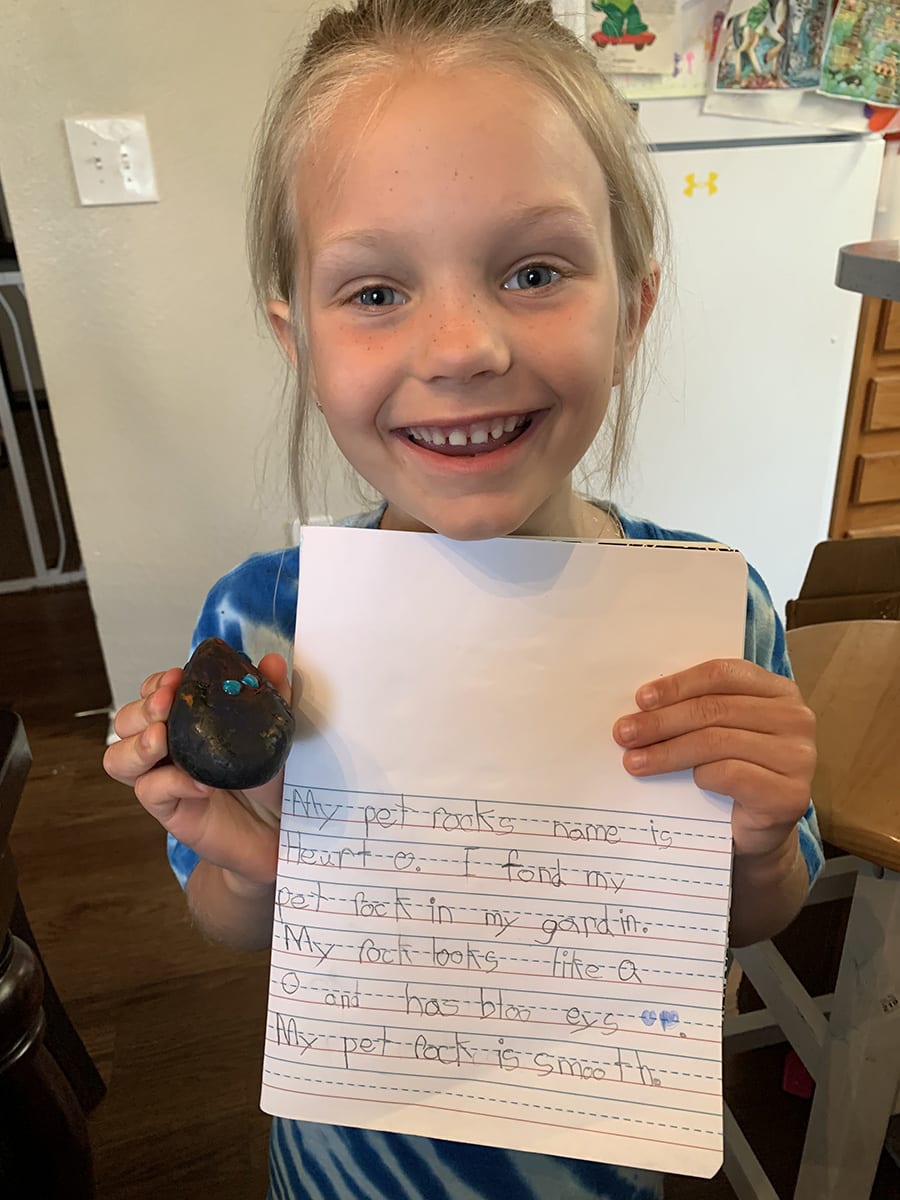 My pet rocks name is
Heurt O. I fond my
pet rock in my gardin.
My rock looks like a
O and has bloo eys.
My pet rock is smooth.